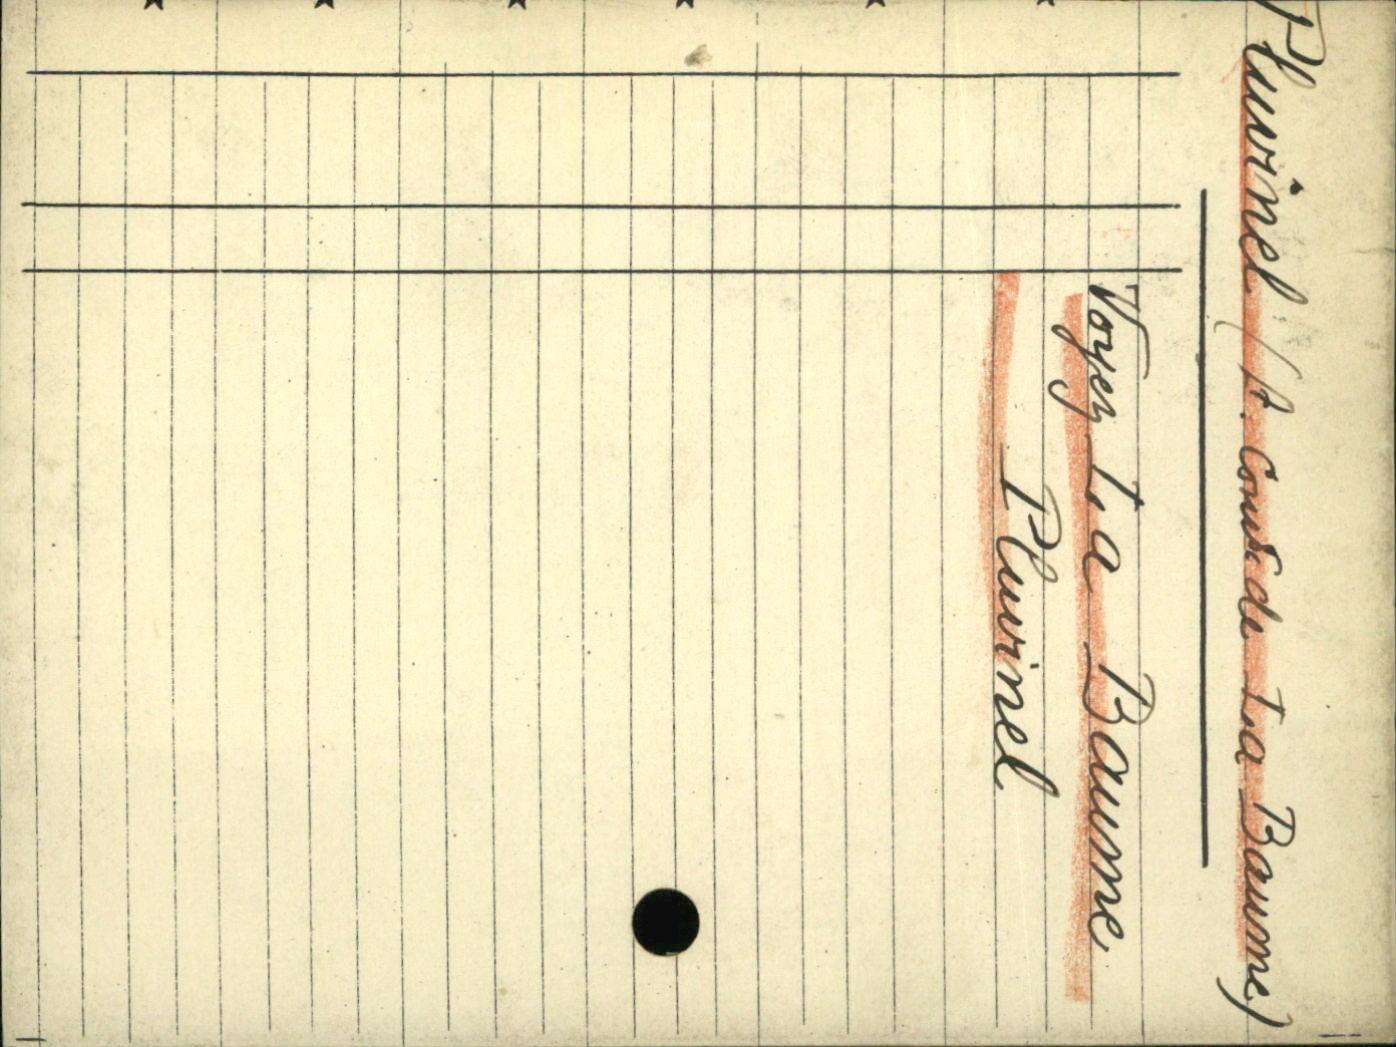 Pluvinel (A. Comte de La Baume)
Voyez La Baume
Pluvinel